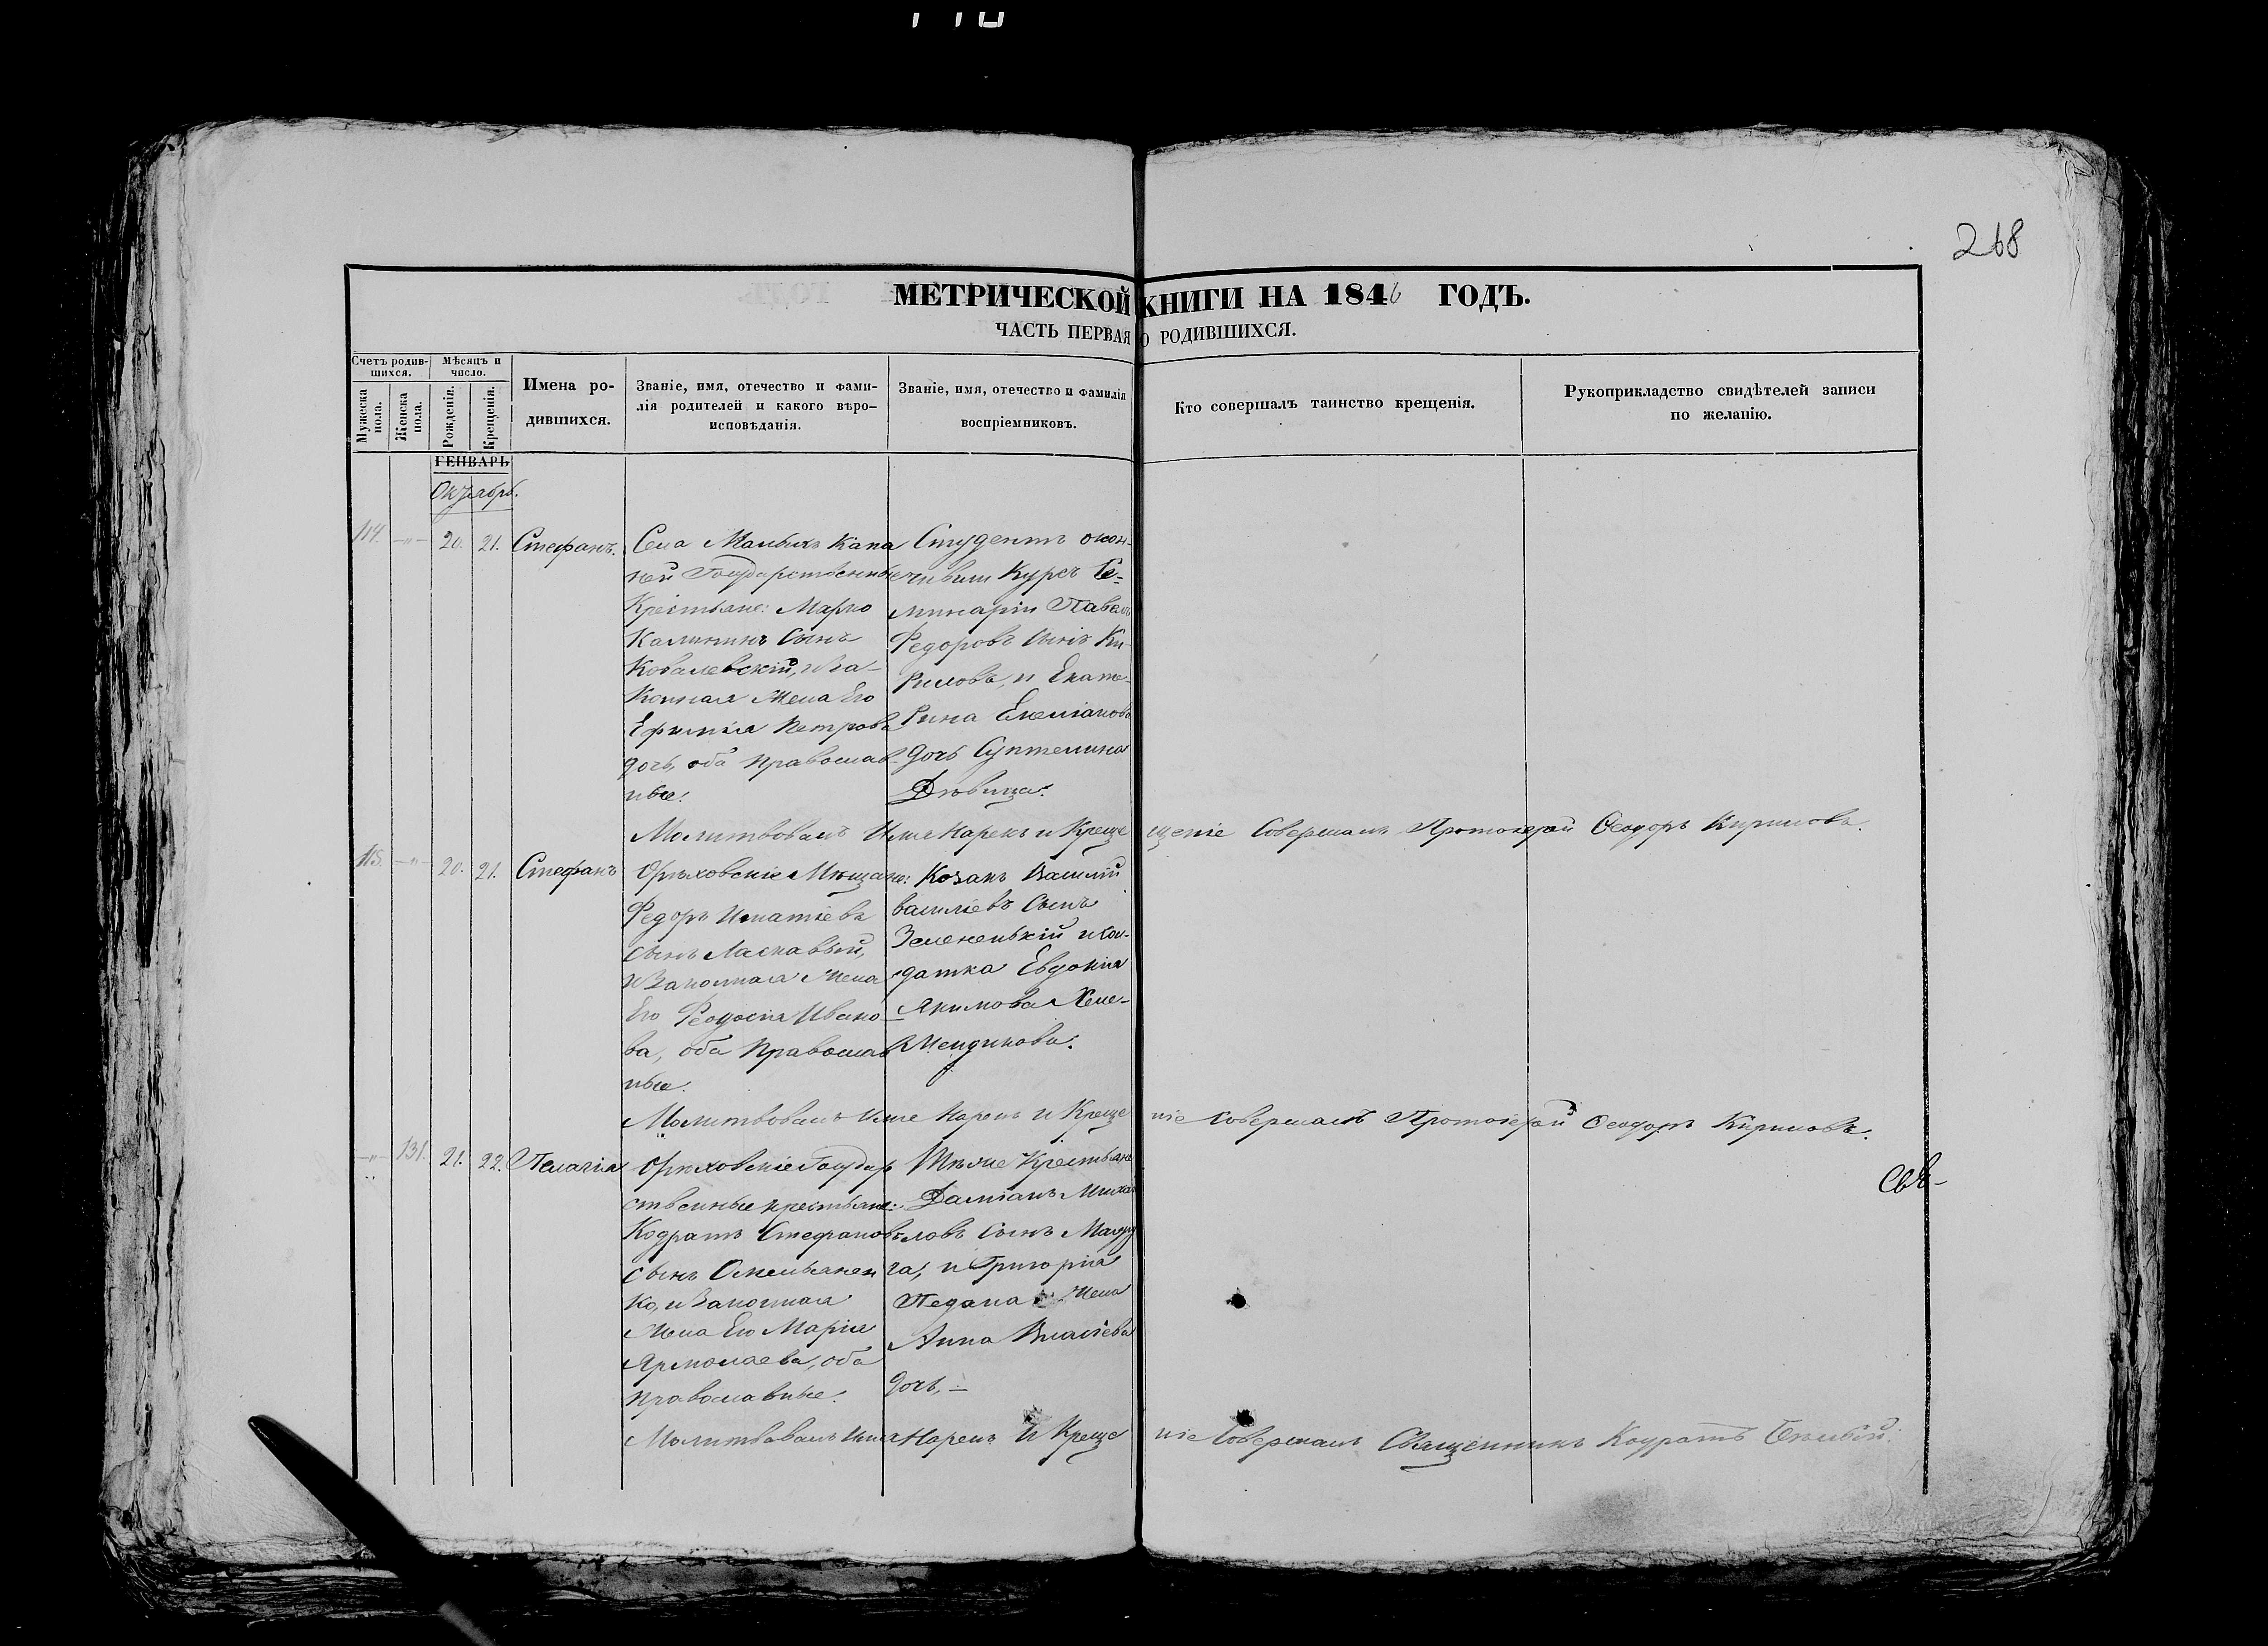 268
МЕТРИЧЕСКОЙ КНИГИ НА 1846 ГОДЪ.
ЧАСТЬ ПЕРВАЯ О РОДИВШИХСЯ.
Счетъ родив-
шихся.
Мужеска
пола.
Женска
пола.
Мѣсяцъ и
число.
Рожденія.
Крещенія.
Имена ро-
дившихся.
Званіе, имя, отечество и фами-
лія родителей и какого вѣро-
исповѣданія.
Званіе, имя, отечество и фамилія
воспріемниковъ.
Кто совершалъ таинство крещенія.
Рукоприкладство свидѣтелей записи
по желанію.
ГЕНВАРЬ
Октябрь.
114. —„— 20. 21. Стефанъ.
Села Малыхъ Капа
ней Государственные
Крестьяне: Марко
Калининъ Сынъ
Ковалевскій, и За-
конная Жена Его
Ефимія Петрова
дочь, оба Православ-
ные.
Студентъ окон-
чивши Курсъ Се-
минаріи Павелъ
Федоровъ Сынъ Ки-
риловъ, и Екате-
рина Емеліанова
дочь
Дѣвица.
Молитвовалъ Имя Нарекъ и Креще щеніе Совершалъ Протоіерей Ѳеодоръ Кириловъ.
115. —„— 20. 21. Стефанъ
Орѣховскіе Мѣщане:
Федоръ Игнатіевъ
сынъ Ласкавый,
и Законная Жена
Его Феодосія Ивано-
ва, оба Православ
ные.
Козакъ Василій
Василіевъ Сынъ
Зеленецькій и Сол-
датка Евдокія
Якимова
Молитвовалъ Имя Нарекъ и Креще ніе Совершалъ Протоіерей Ѳеодоръ Кириловъ.
—„— 131. 21. 22. Пелагія
Орѣховскіе Государ
ственные крестьяне:
Кодратъ Стефановъ
сынъ Омельянен
ко, и Законная
Жена Его Марія
Ярмолаева, оба
Православные.
Тѣ же Крестьяне
Даміанъ Михай
ловъ Сынъ
и Григорія
Педана Жена
Анна Власіева
дочь, —
Молитвовалъ Имя Нарекъ и Креще ніе Совершалъ Священникъ Кодратъ Бѣлый.
Свѣ-